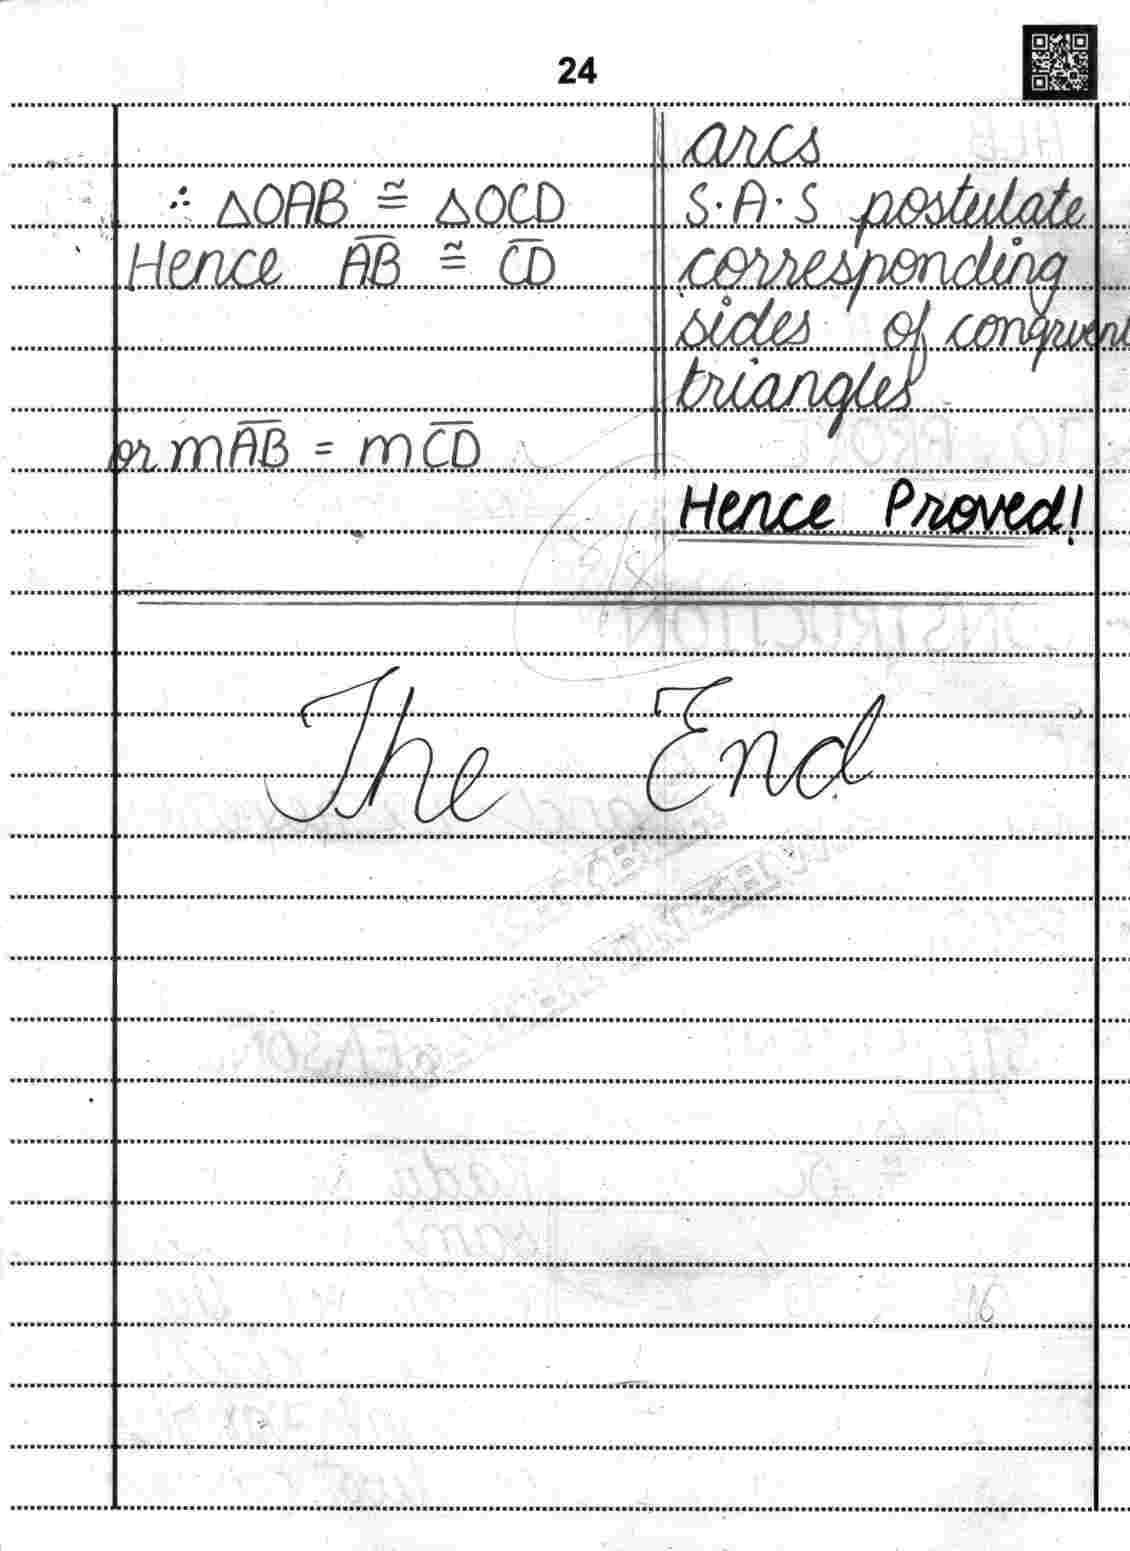 24
arcs
∴ △OAB ≅ △OCD S.A.S postulate
Hence A̅B̅ ≅ C̅D̅ corresponding
sides of congruent
triangles
or mA̅B̅ = mC̅D̅
Hence Proved!
The End